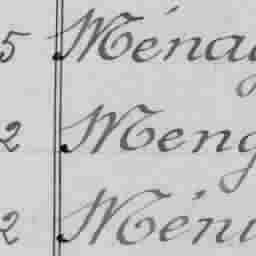 5 Ménag
2 Meng
2 Méni